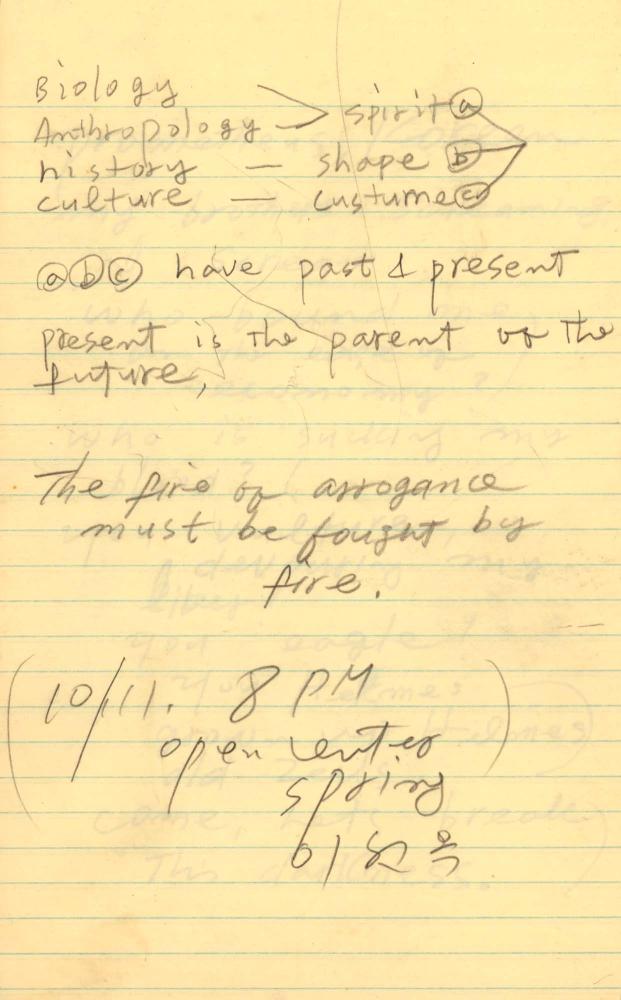 Biology
Anthropology > spirit ⓐ
history — shape ⓑ
culture — custume ⓒ
ⓐⓑⓒ have past & present
present is the parent of the
future,
The fire of arrogance
must be fought by
fire.
(10/11. 8 PM
open center)
spring